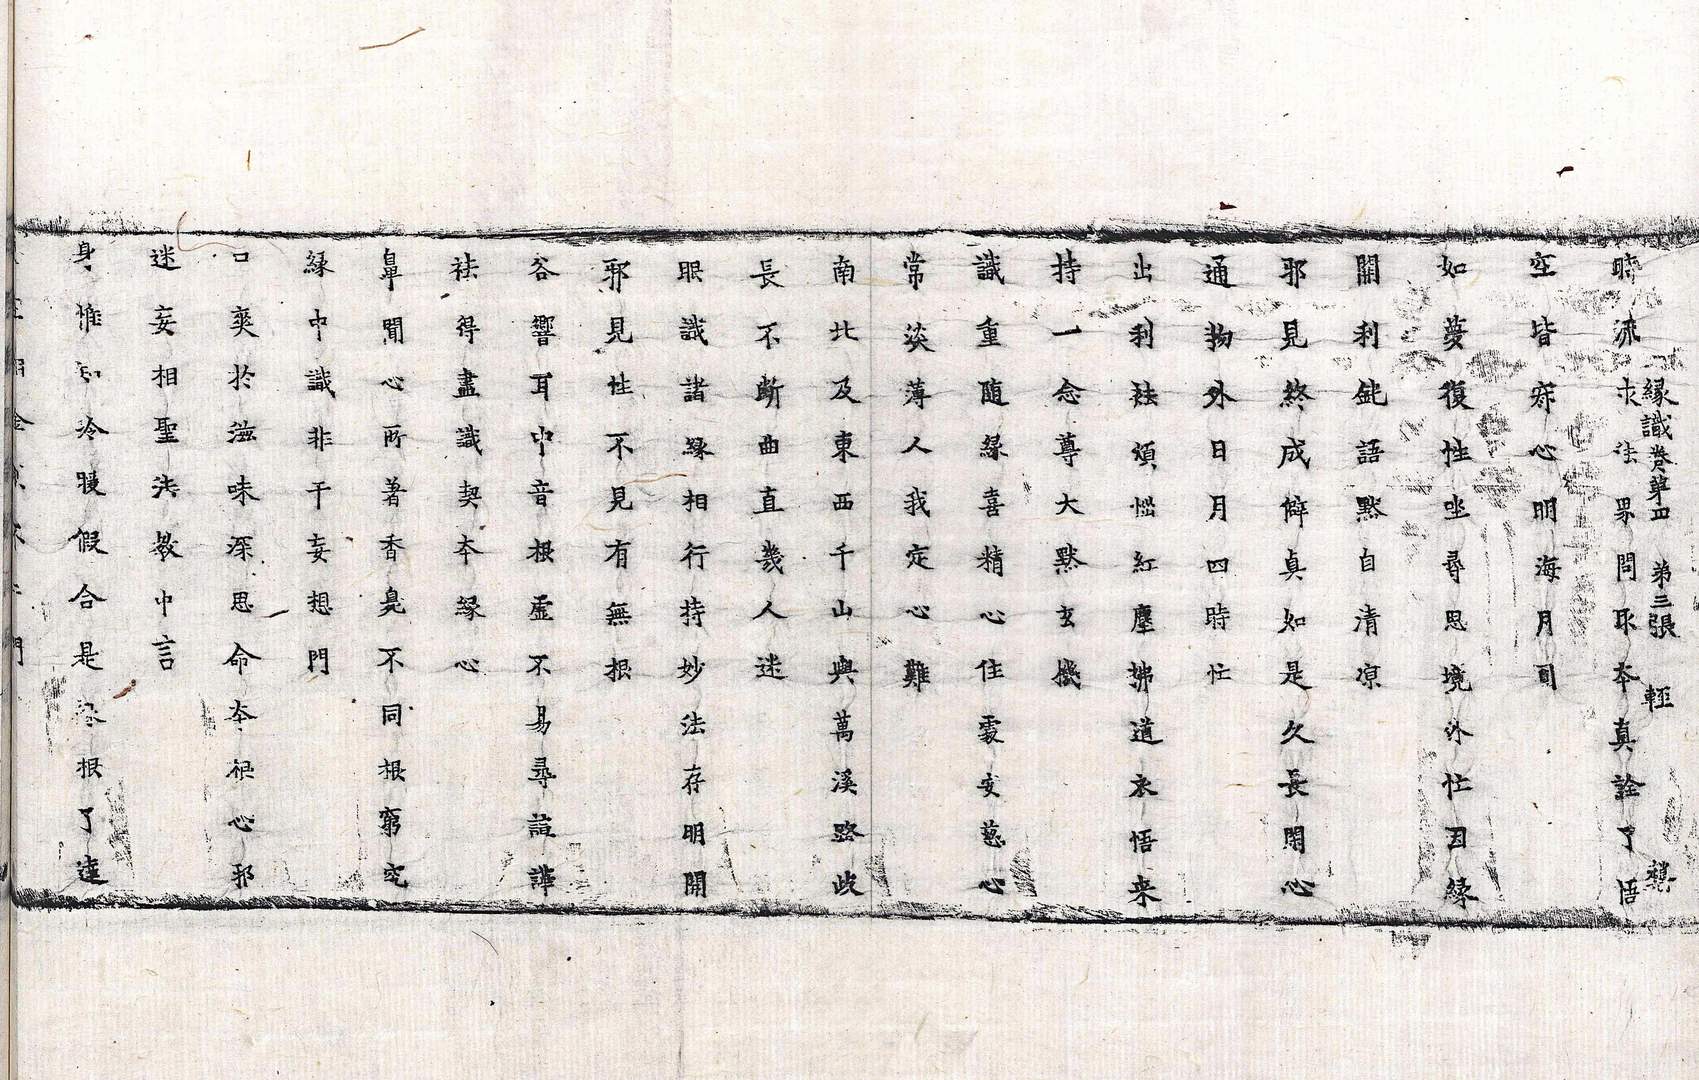 時流求法界問取本真詮了悟
緣識卷第四　第三張　輕　龔
空皆寂心明海月圓
如夢復性坐尋思境外忙因緣
關利鈍語默自清涼
邪見終成僻真如是久長閑心
通物外日月四時忙
出利袪煩惱紅塵拂道衣悟来
持一念尊大默玄機
識重随緣喜精心住處安慈心
常淡薄人我定心難
南北及東西千山與萬溪路歧
長不斷曲直幾人迷
眼識諸緣相行持妙法存明開
邪見性不見有無根
谷響耳中音根虛不易尋諠譁
袪得盡識契本緣心
鼻聞心所著香臭不同根窮究
緣中識非干妄想門
口爽於滋味深思命本根心邪
迷妄相聖法教中言
身惟知冷暖假合是根了達